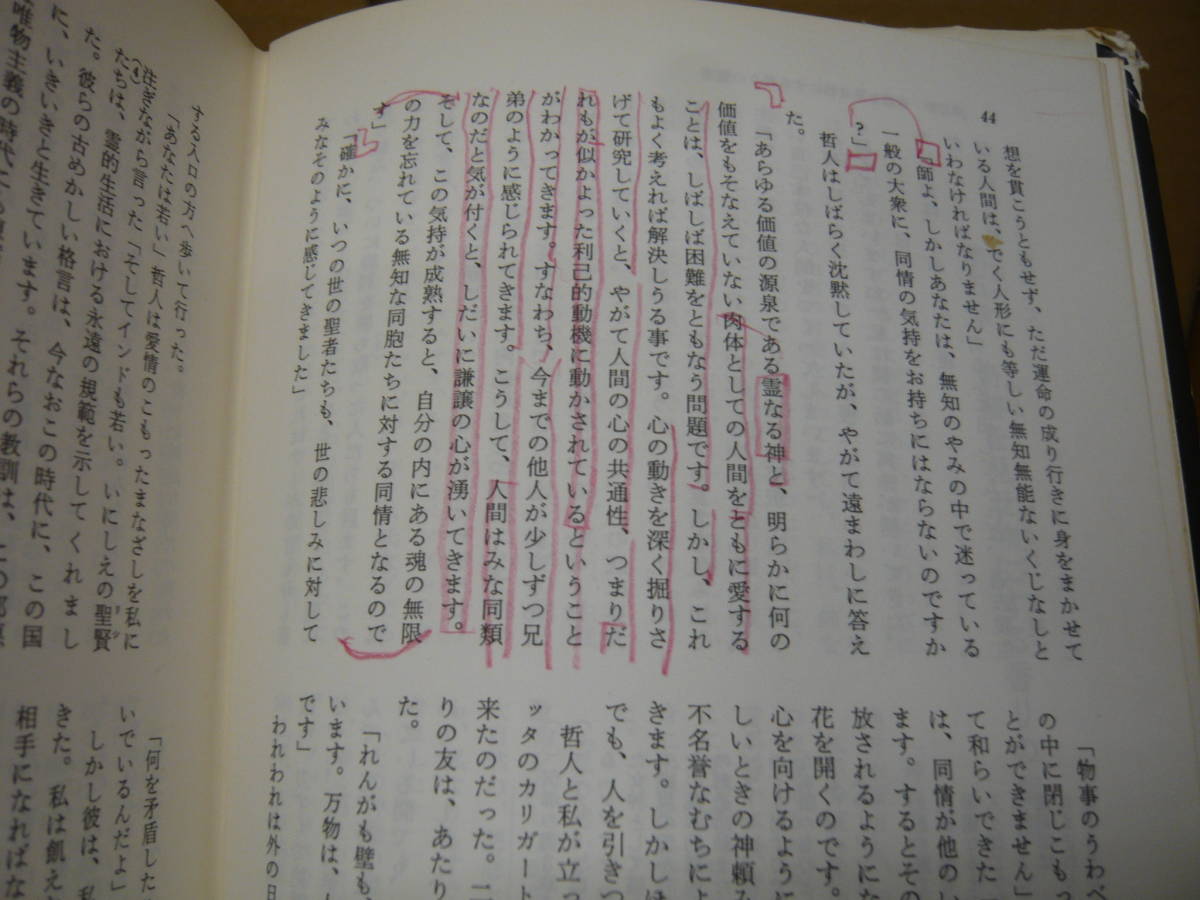 44
想を貫こうともせず、ただ運命の成り行きに身をまかせて
いる人間は、でく人形にも等しい無知無能ないくじなしと
いわなければなりません」
「師よ、しかしあなたは、無知のやみの中で迷っている
一般の大衆に、同情の気持をお持ちにはならないのですか
?」
哲人はしばらく沈黙していたが、やがて遠まわしに答え
た。
「あらゆる価値の源泉である霊なる神と、明らかに何の
価値をもそなえていない肉体としての人間をともに愛する
ことは、しばしば困難をともなう問題です。しかし、これ
もよく考えれば解決しうる事です。心の動きを深く掘りさ
げて研究していくと、やがて人間の心の共通性、つまりだ
れもが似かよった利己的動機に動かされているということ
がわかってきます。すなわち、今までの他人が少しずつ兄
弟のように感じられてきます。こうして、人間はみな同類
なのだと気が付くと、しだいに謙譲の心が湧いてきます。
そして、この気持が成熟すると、自分の内にある魂の無限
の力を忘れている無知な同胞たちに対する同情となるので
す」
「確かに、いつの世の聖者たちも、世の悲しみに対して
みなそのように感じてきました」
「物事のうわべ
の中に閉じこもっ
とができません」
て和らいできた
は、同情が他のい
ます。するとその
放されるようにな
花を開くのです。
心を向けるように
しいときの神頼み
不名誉なむちによ
きます。しかしほ
でも、人を引きつ
哲人と私が立っ
ッタのカリガート
来たのだった。二
りの友は、あたり
た。
「れんがも壁も、
います。万物は、
です」
われわれは外の日
する入口の方へ歩いて行った。
「あなたは若い」哲人は愛情のこもったまなざしを私に
注ぎながら言った「そしてインドも若い。いにしえの聖賢
リシ
たちは、霊的生活における永遠の規範を示してくれまし
(4)
た。彼らの古めかしい格言は、今なおこの時代に、この国
に、いきいきと生きています。それらの教訓は、
唯物主義の時代に
「何を矛盾した
いでいるんだよ」
しかし彼は、私
きた。私は飢え
相手になればな